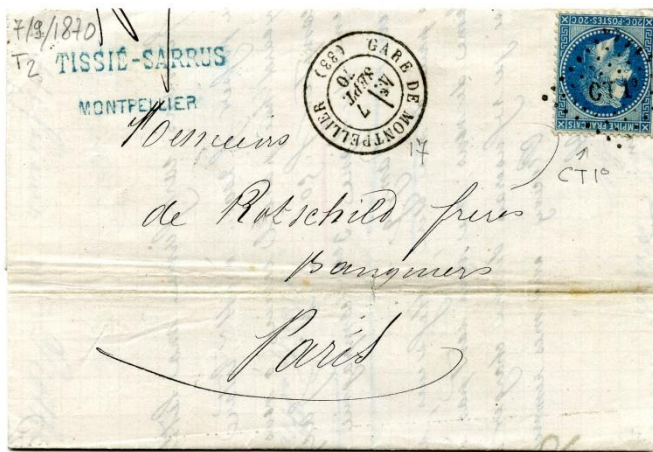 7/9/1870
T2
TISSIÉ-SARRUS
MONTPELLIER
GARE DE MONTPELLIER (33)
7
SEPT.
70
17
20C-POSTES-20C
EMPIRE FRANÇAIS
CT1º
CT1º
Messieurs
de Rotschild frères
Banquiers
Paris